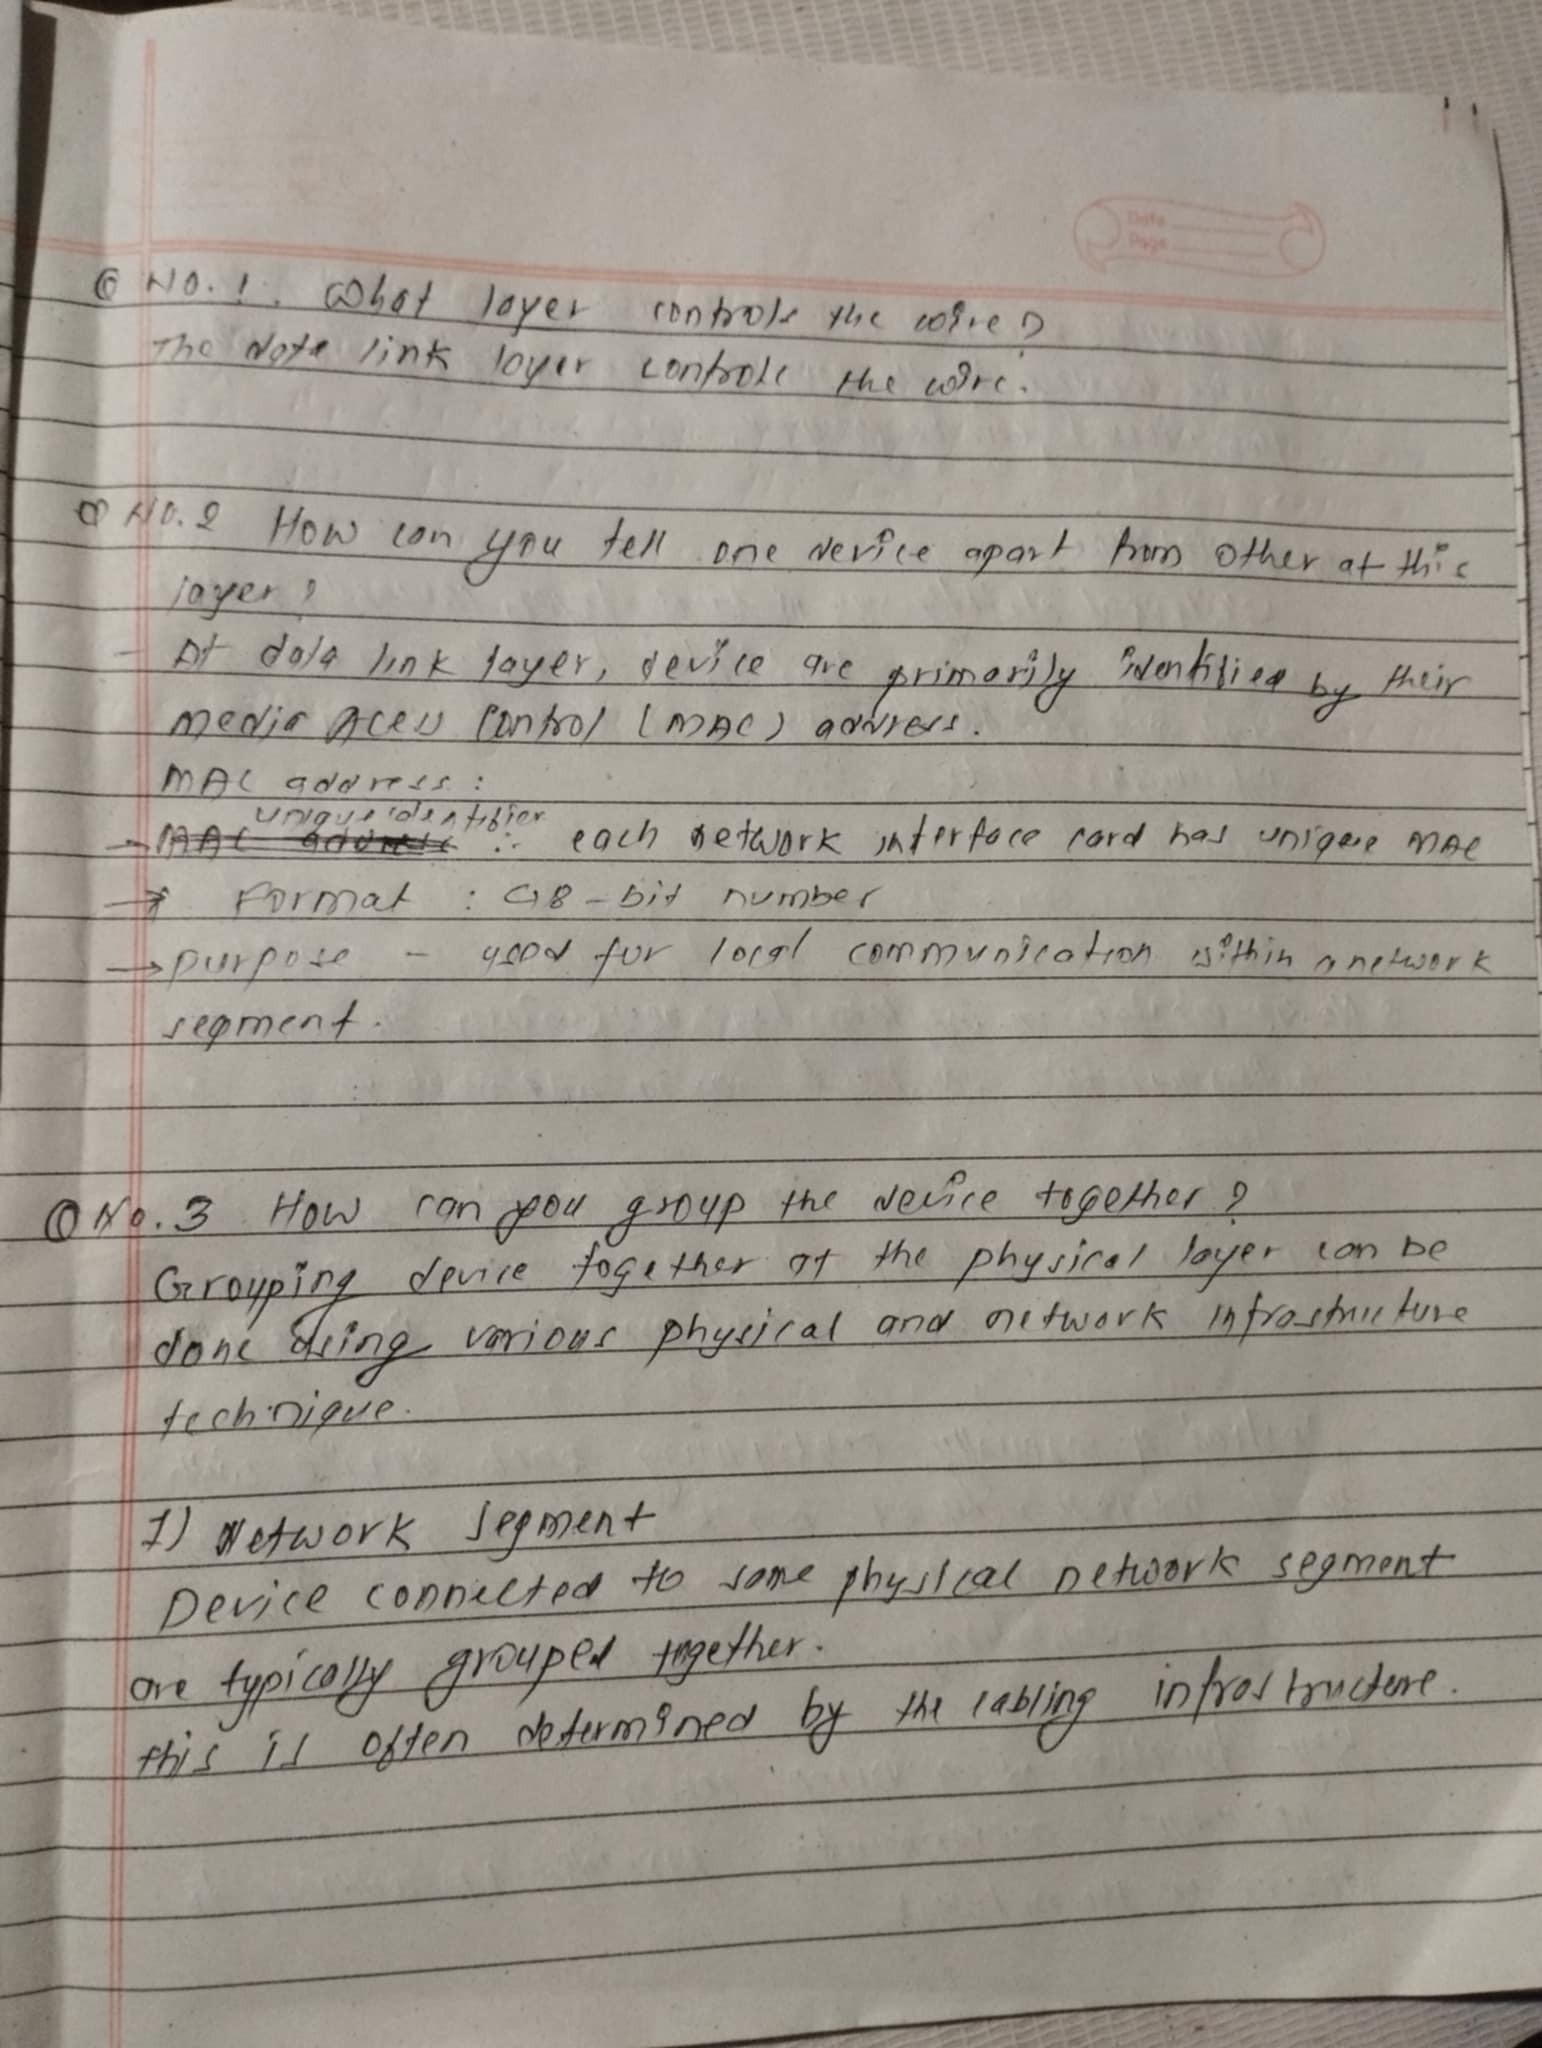 Date
Page
Q No. 1. What layer controls the wire?
The data link layer controls the wire.
Q No. 2 How can you tell one device apart from other at this
layer?
- At data link layer, device are primarily identified by their
Media Acess Control (MAC) address.
MAC address :
unique identifier
→ MAC address : each network interface card has unique MAC
→ Format : 48-bit number
→ purpose - used for local communication within a network
segment.
Q No. 3 How can you group the device together?
Grouping device together at the physical layer can be
done using various physical and network infrastructure
technique.
1) Network segment
Device connected to same physical network segment
are typically grouped together.
this is often determined by the cabling infrastructure.